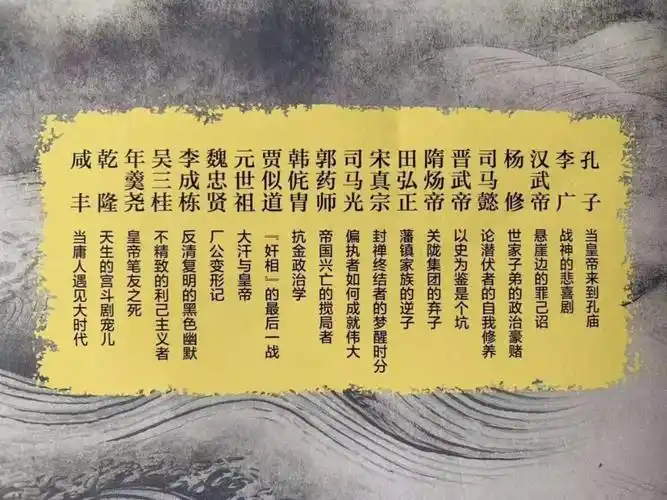 孔子 当皇帝来到孔庙
李广 战神的悲喜剧
汉武帝 悬崖边的罪己诏
杨修 世家子弟的政治豪赌
司马懿 论潜伏者的自我修养
晋武帝 以史为鉴是个坑
隋炀帝 关陇集团的弃子
田弘正 藩镇家族的逆子
宋真宗 封禅终结者的梦醒时分
司马光 偏执者如何成就伟大
郭药师 帝国兴亡的搅局者
韩侂胄 抗金政治学
贾似道 “奸相”的最后一战
元世祖 大汗与皇帝
魏忠贤 厂公变形记
李成栋 反清复明的黑色幽默
吴三桂 不精致的利己主义者
年羹尧 皇帝笔友之死
乾隆 天生的宫斗剧宠儿
咸丰 当庸人遇见大时代